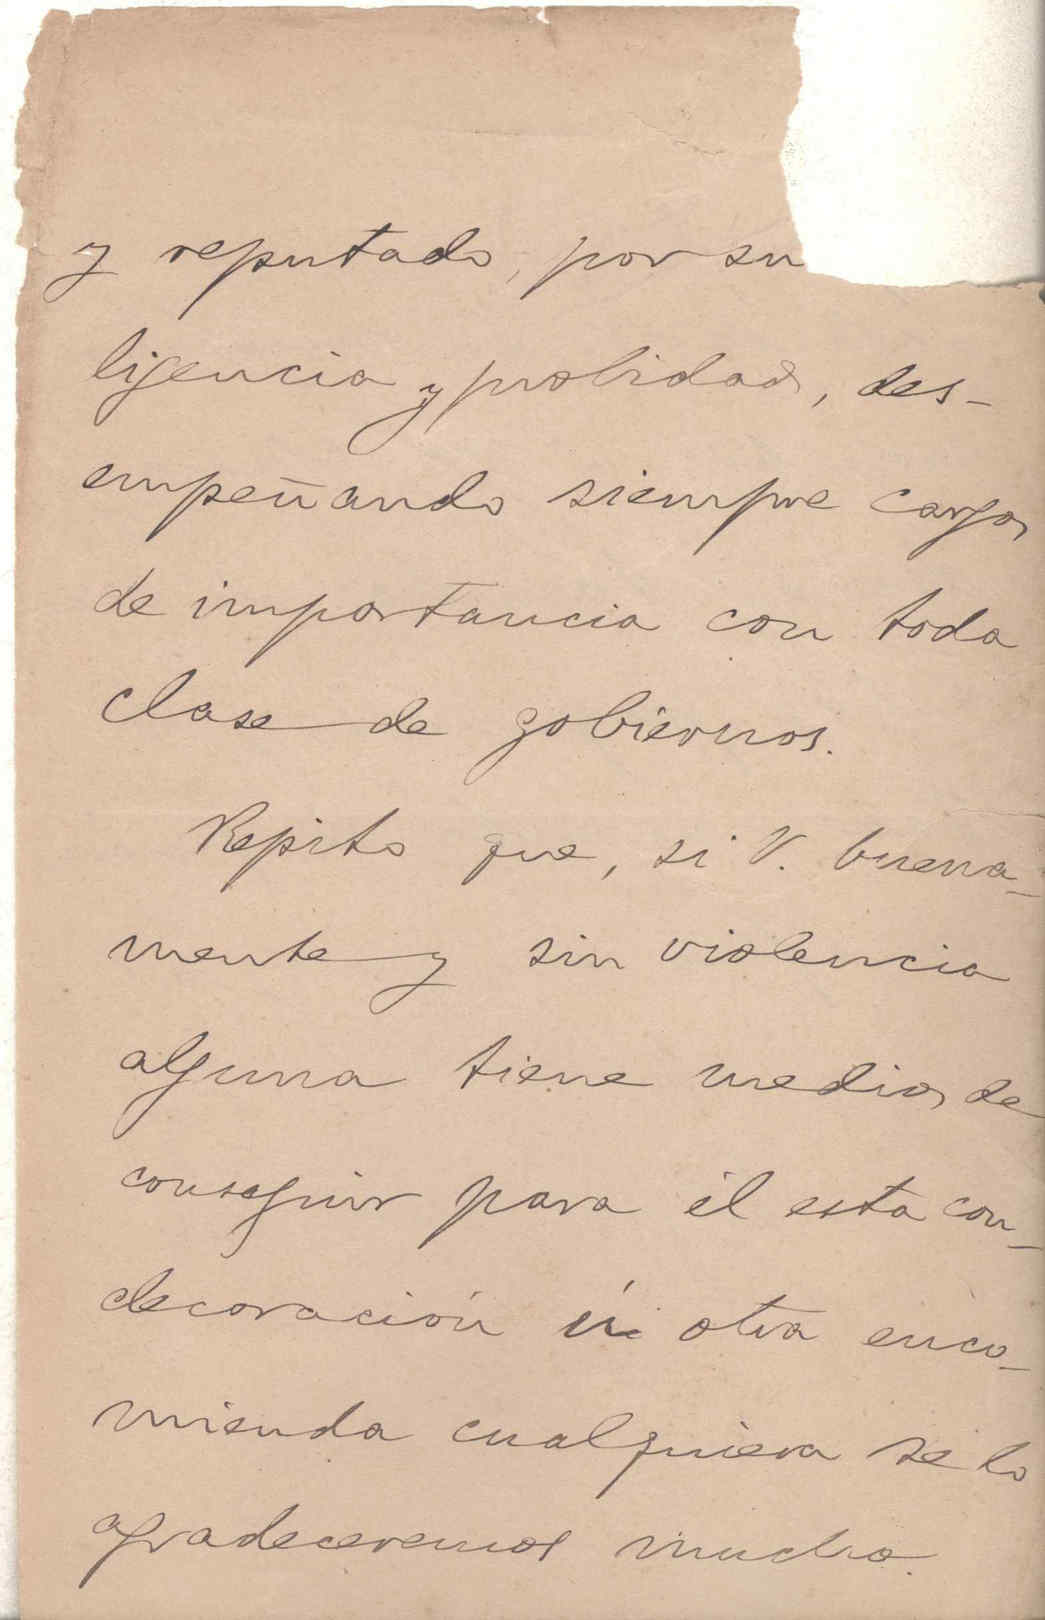 y reputado, por su
ligencia y probidad, des-
empeñando siempre cargos
de importancia con toda
clase de gobiernos.
Repito que, si V. buena-
mente y sin violencia
alguna tiene medios de
conseguir para él esta con-
decoración ú otra enco-
mienda cualquiera se lo
agradeceremos mucho.